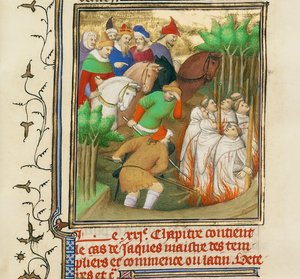 e .xxi.e Chapitre contient
le cas de Jaques maistre des tem
pliers et commence ou latin. Dete
res et c̃